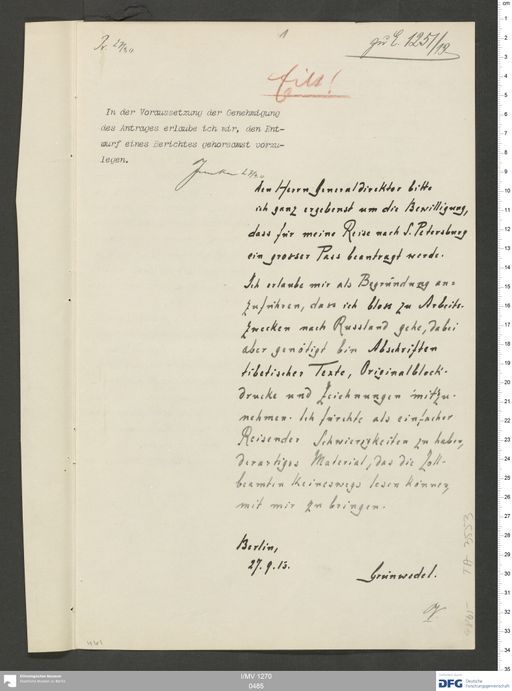 1
zu E. 1251/13
Eilt!
In der Voraussetzung der Genehmigung
des Antrages erlaube ich mir, den Ent-
wurf eines Berichtes gehorsamst vorzu-
legen.
den Herrn Generaldirektor bitte
ich ganz ergebenst um die Bewilligung,
dass für meine Reise nach S. Petersburg
ein grosser Pass beantragt werde.
Ich erlaube mir als Begründung an=
zuführen, dass ich bloss zu Arbeits-
zwecken nach Russland gehe, dabei
aber genötigt bin Abschriften
tibetischer Texte, Originalblock-
drucke und Zeichnungen mitzu-
nehmen. Ich fürchte als einfacher
Reisender Schwierigkeiten zu haben,
derartiges Material, das die Zoll-
beamten keineswegs lesen können,
mit mir zu bringen.
Berlin,
27.9.13.
Grünwedel.
461
IA 3553
Ethnologisches Museum
Staatliche Museen zu Berlin
I/MV 1270
0485
gefördert durch
DFG Deutsche
Forschungsgemeinschaft
cm
1
2
3
4
5
6
7
8
9
10
11
12
13
14
15
16
17
18
19
20
21
22
23
24
25
26
27
28
29
30
31
32
33
34
35